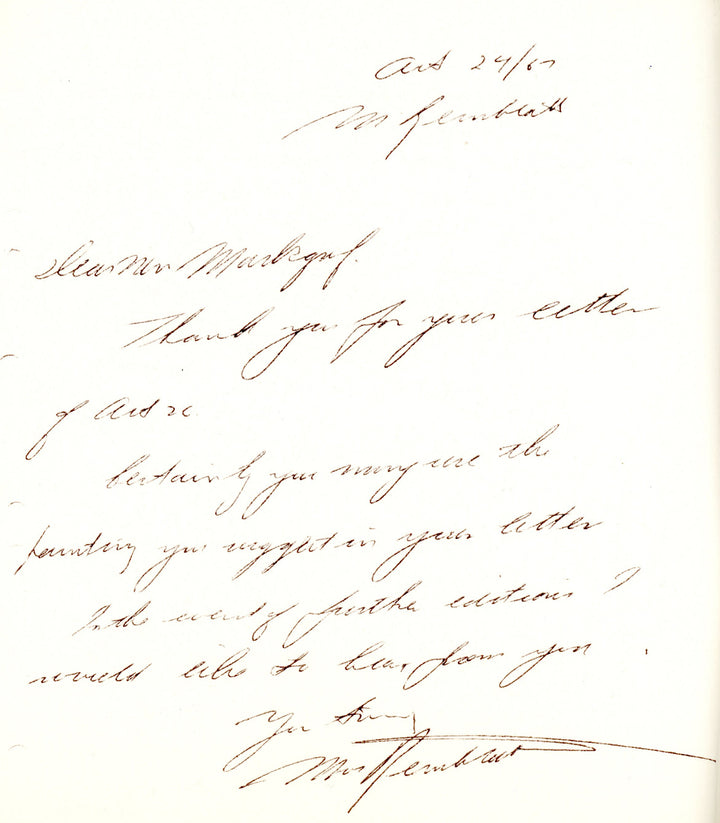 Oct 24/67
M Kernblatt
Dear Mr Markgraf.
Thank you for your letter
of Oct
Certainly you may use the
painting you suggest in your letter
In the event of further editions I
would like to hear from you
Yours truly